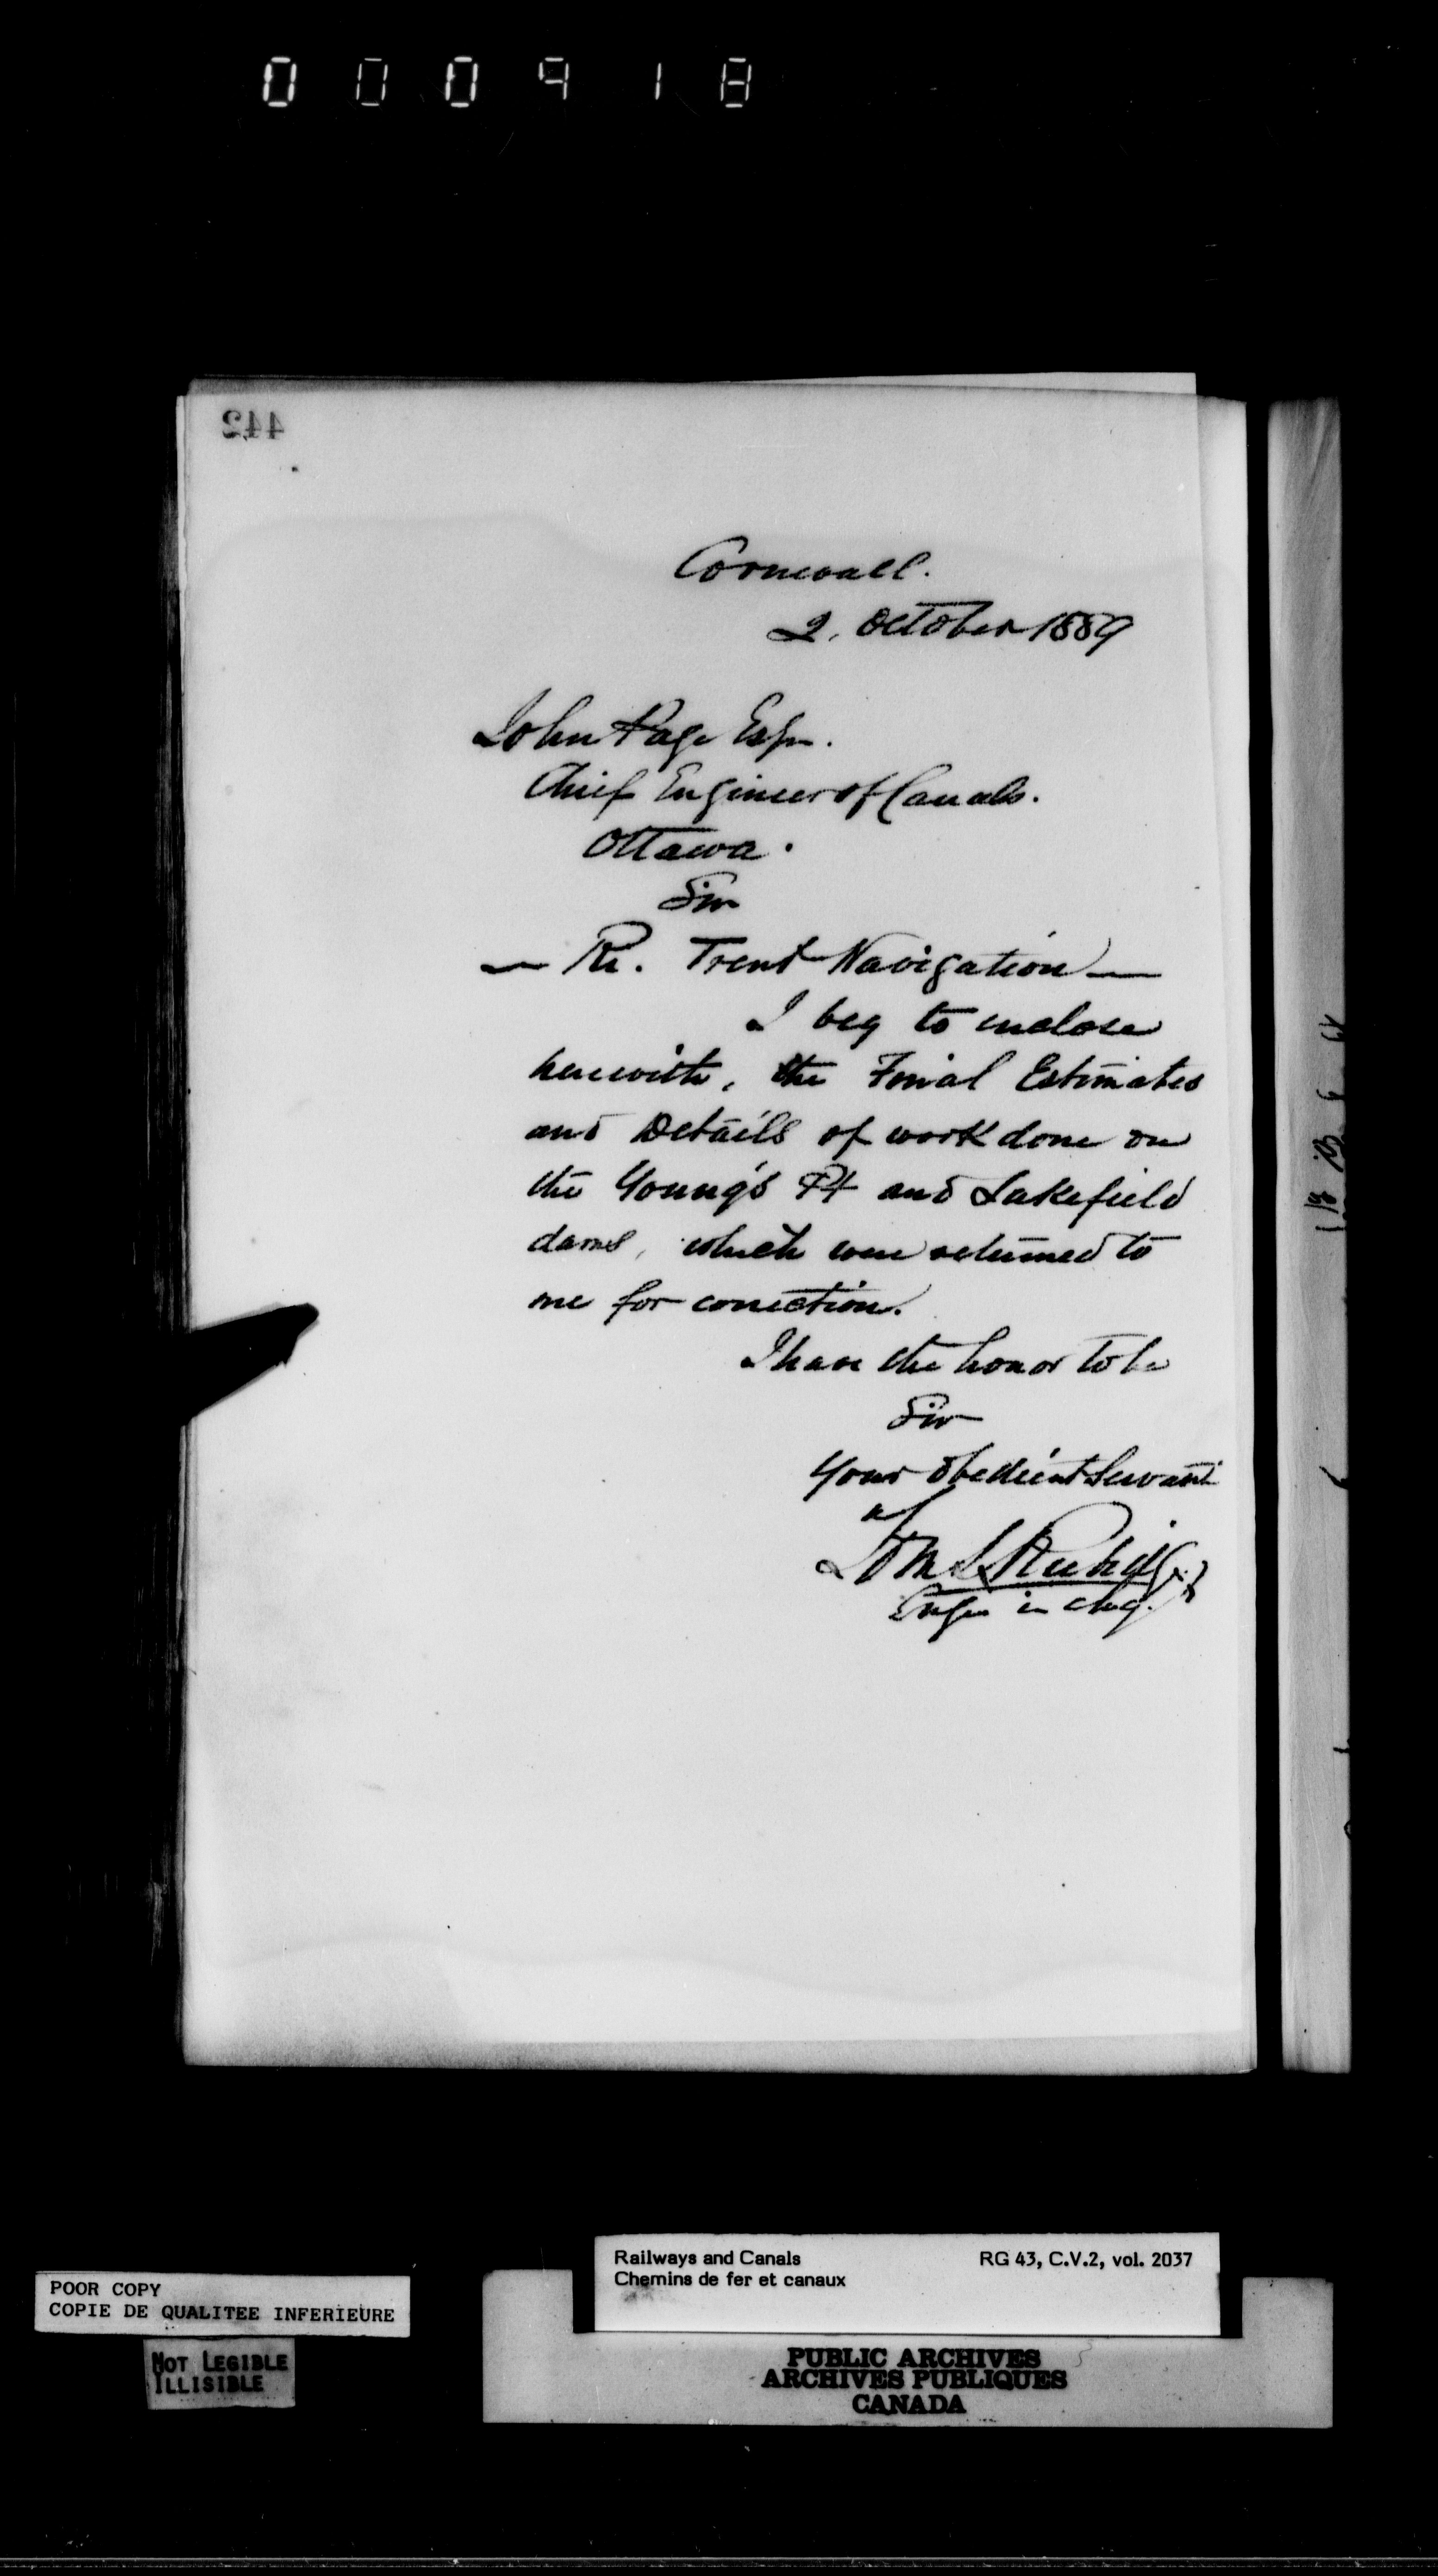 000918
442
Cornwall.
2. October 1889
John Page Esqr.
Chief Engineer of Canals.
Ottawa.
Sir
— Re. Trent Navigation —
I beg to enclose
herewith, the Final Estimates
and Details of work done on
the Young's Pt and Lakefield
dams, which were returned to
me for correction.
I have the honor to be
Sir
Your obedient Servant
Engr in chg.
Railways and Canals RG 43, C.V.2, vol. 2037
Chemins de fer et canaux
POOR COPY
COPIE DE QUALITEE INFERIEURE
NOT LEGIBLE
ILLISIBLE
PUBLIC ARCHIVES
ARCHIVES PUBLIQUES
CANADA